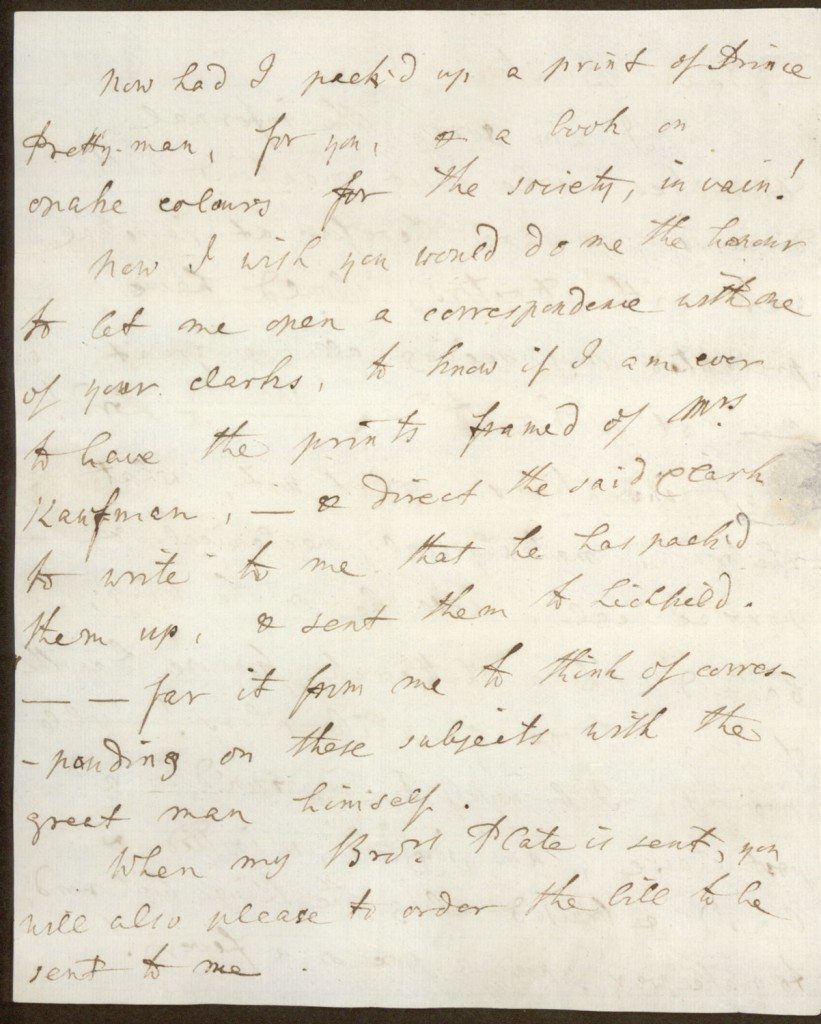 Now had I pack'd up a print of Prince
Pretty-man, for you, & a book on
onake colours for the society, in vain!
Now I wish you would do me the honour
to let me open a correspondence with one
of your clarks, to know if I am ever
to have the prints framed of Mrs
Kaufman, — & direct the said Clark
to write to me that he has pack'd
them up, & sent them to Lichfield.
— — far it from me to think of corres-
-ponding on these subjects with the
great man himself.
When my Bror's Plate is sent, you
will also please to order the bill to be
sent to me.